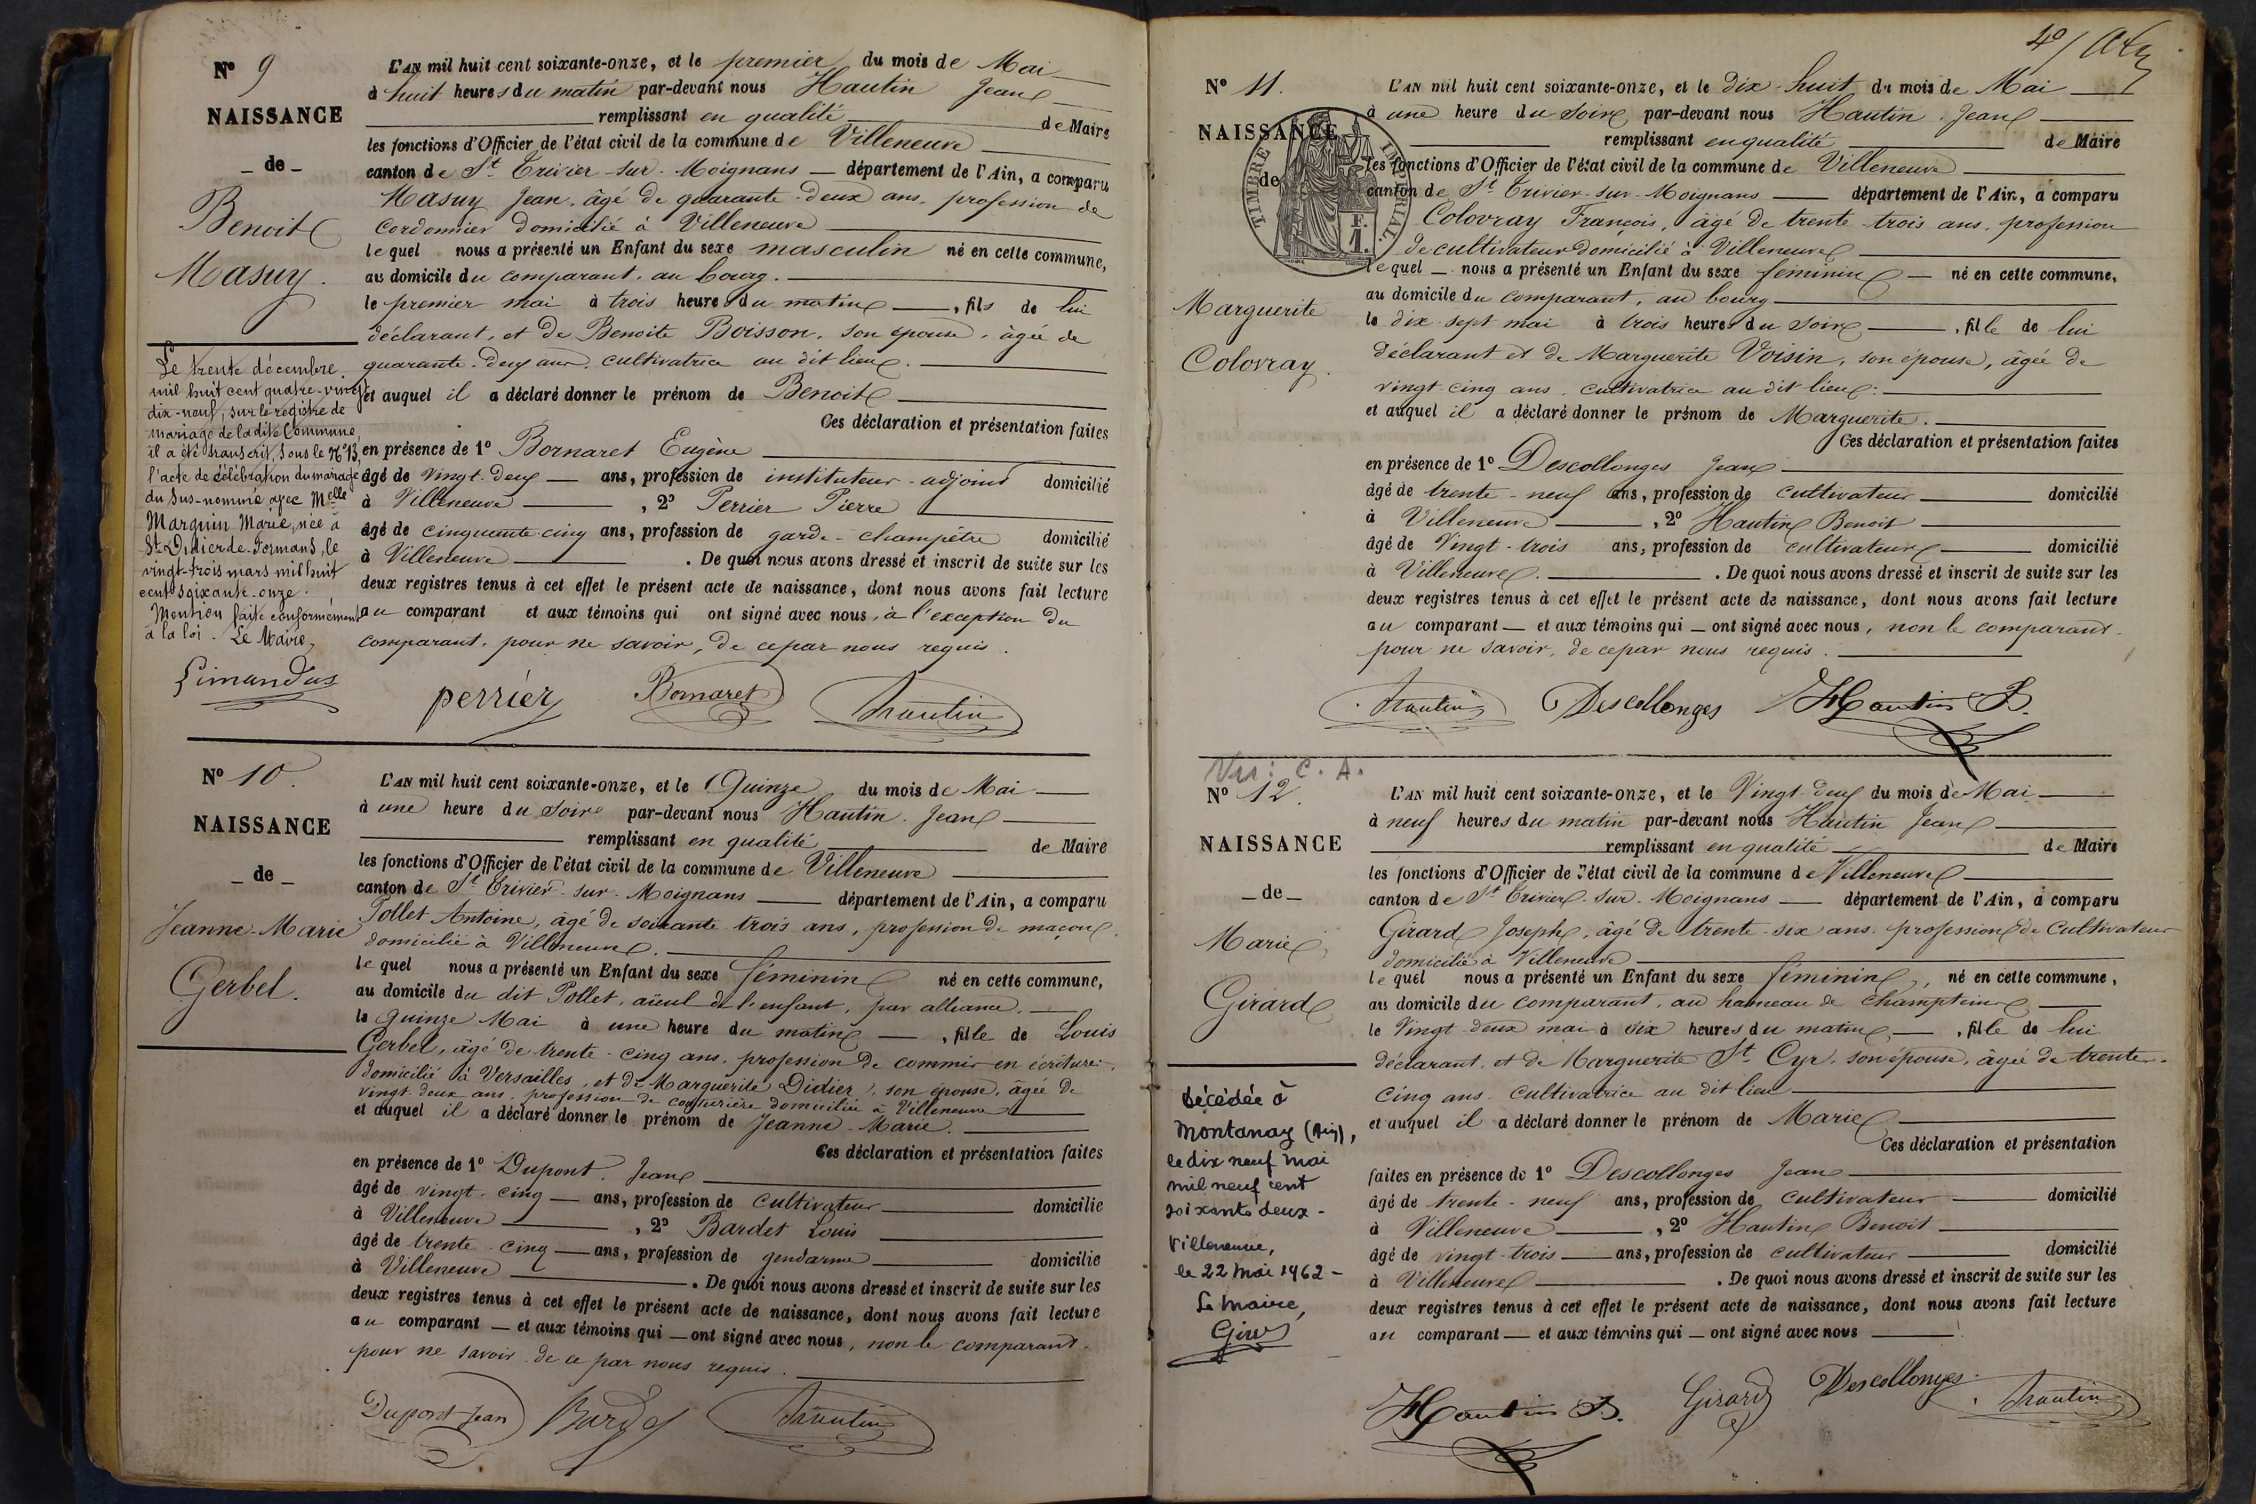 Nº 9
NAISSANCE
_ de _
Benoit
Masuy.
L'AN mil huit cent soixante-onze, et le premier du mois de Mai
à huit heures du matin par-devant nous Hautin Jean
remplissant en qualité de Maire
les fonctions d'Officier de l'état civil de la commune de Villeneuve
canton de St Trivier-sur-Moignans département de l'Ain, a comparu
Masuy Jean, âgé de quarante-deux ans, profession de
cordonnier domicilié à Villeneuve
lequel nous a présenté un Enfant du sexe masculin né en cette commune,
au domicile du comparant, au bourg.
le premier mai à trois heures du matin, fils de lui
déclarant, et de Benoite Boisson, son épouse, âgée de
quarante-deux ans, cultivatrice au dit lieu.
et auquel il a déclaré donner le prénom de Benoit
Ces déclaration et présentation faites
en présence de 1º Bornaret Eugène
âgé de vingt-deux ans, profession de instituteur-adjoint domicilié
à Villeneuve, 2º Perrier Pierre
âgé de cinquante-cinq ans, profession de garde-champêtre domicilié
à Villeneuve. De quoi nous avons dressé et inscrit de suite sur les
deux registres tenus à cet effet le présent acte de naissance, dont nous avons fait lecture
au comparant et aux témoins qui ont signé avec nous, à l'exception du
comparant, pour ne savoir, de ce par nous requis.
Le trente décembre
mil huit cent quatre-vingt
dix-neuf, sur le registre de
mariage de la dite Commune,
il a été transcrit, sous le Nº 13,
l'acte de célébration du mariage
du sus-nommé avec Melle
Marguin Marie, née à
St Didier-de-Formans, le
vingt-trois mars mil huit
cent soixante-onze.
Mention faite conformément
à la loi. Le Maire,
Limandas
perrier Bornaret Hautin
Nº 10.
NAISSANCE
_ de _
Jeanne-Marie
Gerbel.
L'AN mil huit cent soixante-onze, et le Quinze du mois de Mai
à une heure du soir par-devant nous Hautin Jean
remplissant en qualité de Maire
les fonctions d'Officier de l'état civil de la commune de Villeneuve
canton de St Trivier-sur-Moignans département de l'Ain, a comparu
Pollet Antoine, âgé de soixante trois ans, profession de maçon,
domicilié à Villeneuve.
lequel nous a présenté un Enfant du sexe féminin né en cette commune,
au domicile du dit Pollet, aïeul de l'enfant, par alliance.
le quinze Mai à une heure du matin, fille de Louis
Gerbel, âgé de trente-cinq ans, profession de commis en écritures,
domicilié à Versailles, et de Marguerite Didier, son épouse, âgée de
vingt-deux ans, profession de couturière domiciliée à Villeneuve
et auquel il a déclaré donner le prénom de Jeanne-Marie.
Ces déclaration et présentation faites
en présence de 1º Dupont Jean
âgé de vingt-cinq ans, profession de cultivateur domicilié
à Villeneuve, 2º Bardet Louis
âgé de trente-cinq ans, profession de gendarme domicilié
à Villeneuve. De quoi nous avons dressé et inscrit de suite sur les
deux registres tenus à cet effet le présent acte de naissance, dont nous avons fait lecture
au comparant et aux témoins qui ont signé avec nous, non le comparant
pour ne savoir de ce par nous requis.
Dupont Jean Bardet Hautin
Nº 11.
NAISSANCE
de
TIMBRE IMPÉRIAL
F.
1.
Marguerite
Colovray.
L'AN mil huit cent soixante-onze, et le dix-huit du mois de Mai
à une heure du soir par-devant nous Hautin Jean
remplissant en qualité de Maire
les fonctions d'Officier de l'état civil de la commune de Villeneuve
canton de St Trivier-sur-Moignans département de l'Ain, a comparu
Colovray François, âgé de trente-trois ans, profession
de cultivateur domicilié à Villeneuve
lequel nous a présenté un Enfant du sexe féminin né en cette commune,
au domicile du comparant, au bourg
le dix-sept mai à trois heures du soir, fille de lui
déclarant et de Marguerite Voisin, son épouse, âgée de
vingt-cinq ans, cultivatrice au dit lieu.
et auquel il a déclaré donner le prénom de Marguerite.
Ces déclaration et présentation faites
en présence de 1º Descollonges Jean
âgé de trente-neuf ans, profession de cultivateur domicilié
à Villeneuve, 2º Hautin Benoit
âgé de Vingt-trois ans, profession de cultivateur domicilié
à Villeneuve. De quoi nous avons dressé et inscrit de suite sur les
deux registres tenus à cet effet le présent acte de naissance, dont nous avons fait lecture
au comparant et aux témoins qui ont signé avec nous, non le comparant
pour ne savoir, de ce par nous requis.
Hautin Descollonges Hautin B.
C. A.
Nº 12.
NAISSANCE
_ de _
Marie
Girard
L'AN mil huit cent soixante-onze, et le Vingt-deux du mois de Mai
à neuf heures du matin par-devant nous Hautin Jean
remplissant en qualité de Maire
les fonctions d'Officier de l'état civil de la commune de Villeneuve
canton de St Trivier-sur-Moignans département de l'Ain, a comparu
Girard Joseph, âgé de trente-six ans, profession de cultivateur
domicilié à Villeneuve
lequel nous a présenté un Enfant du sexe féminin, né en cette commune,
au domicile du comparant, au hameau de
le Vingt-deux mai à six heures du matin, fille de lui
déclarant, et de Marguerite St Cyr, son épouse, âgée de trente-
cinq ans, cultivatrice au dit lieu
et auquel il a déclaré donner le prénom de Marie
Ces déclaration et présentation
faites en présence de 1º Descollonges Jean
âgé de trente-neuf ans, profession de cultivateur domicilié
à Villeneuve, 2º Hautin Benoit
âgé de vingt-trois ans, profession de cultivateur domicilié
à Villeneuve. De quoi nous avons dressé et inscrit de suite sur les
deux registres tenus à cet effet le présent acte de naissance, dont nous avons fait lecture
au comparant et aux témoins qui ont signé avec nous
décédée à
Montanay (Ain),
le dix neuf mai
mil neuf cent
soixante deux -
Villeneuve,
le 22 Mai 1962 -
Le Maire,
Hautin B. Girard Descollonges Hautin